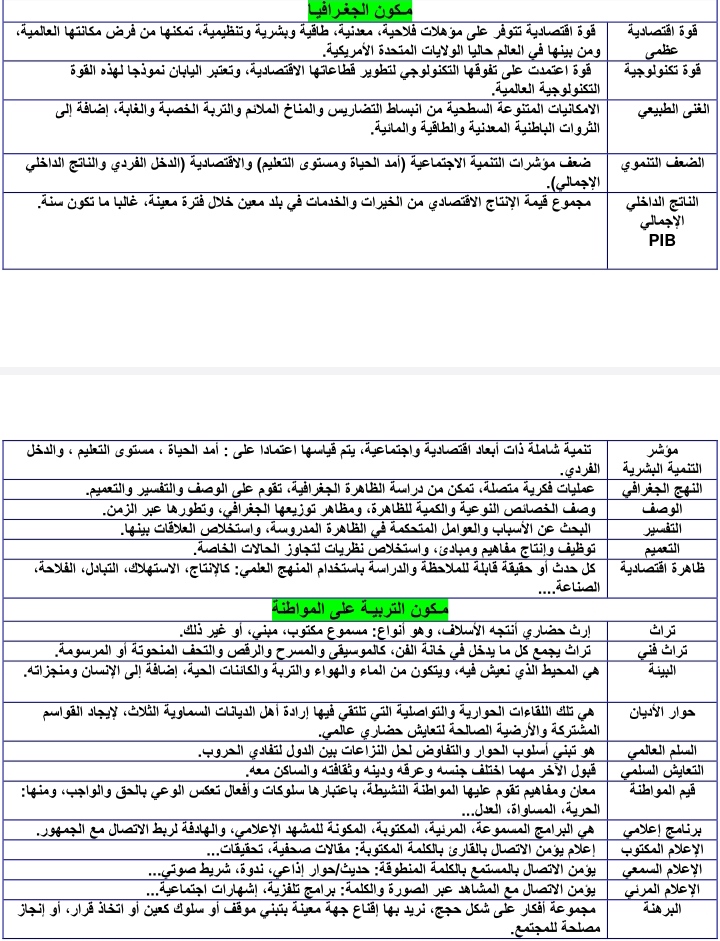 مكون الجغرافيا
قوة اقتصادية قوة اقتصادية تتوفر على مؤهلات فلاحية، معدنية، طاقية وبشرية وتنظيمية، تمكنها من فرض مكانتها العالمية،
عظمى ومن بينها في العالم حاليا الولايات المتحدة الأمريكية.
قوة تكنولوجية قوة اعتمدت على تفوقها التكنولوجي لتطوير قطاعاتها الاقتصادية، وتعتبر اليابان نموذجا لهذه القوة
التكنولوجية العالمية.
الغنى الطبيعي الامكانيات المتنوعة السطحية من انبساط التضاريس والمناخ الملائم والتربة الخصبة والغابة، إضافة إلى
الثروات الباطنية المعدنية والطاقية والمائية.
الضعف التنموي ضعف مؤشرات التنمية الاجتماعية (أمد الحياة ومستوى التعليم) والاقتصادية (الدخل الفردي والناتج الداخلي
الإجمالي).
الناتج الداخلي مجموع قيمة الإنتاج الاقتصادي من الخيرات والخدمات في بلد معين خلال فترة معينة، غالبا ما تكون سنة.
الإجمالي
PIB
مؤشر تنمية شاملة ذات أبعاد اقتصادية واجتماعية، يتم قياسها اعتمادا على : أمد الحياة ، مستوى التعليم ، والدخل
التنمية البشرية الفردي.
النهج الجغرافي عمليات فكرية متصلة، تمكن من دراسة الظاهرة الجغرافية، تقوم على الوصف والتفسير والتعميم.
الوصف وصف الخصائص النوعية والكمية للظاهرة، ومظاهر توزيعها الجغرافي، وتطورها عبر الزمن.
التفسير البحث عن الأسباب والعوامل المتحكمة في الظاهرة المدروسة، واستخلاص العلاقات بينها.
التعميم توظيف وإنتاج مفاهيم ومبادئ، واستخلاص نظريات لتجاوز الحالات الخاصة.
ظاهرة اقتصادية كل حدث أو حقيقة قابلة للملاحظة والدراسة باستخدام المنهج العلمي: كالإنتاج، الاستهلاك، التبادل، الفلاحة،
الصناعة....
مكون التربية على المواطنة
تراث إرث حضاري أنتجه الأسلاف، وهو أنواع: مسموع مكتوب، مبني، أو غير ذلك.
تراث فني تراث يجمع كل ما يدخل في خانة الفن، كالموسيقى والمسرح والرقص والتحف المنحوتة أو المرسومة.
البيئة هي المحيط الذي نعيش فيه، ويتكون من الماء والهواء والتربة والكائنات الحية، إضافة إلى الإنسان ومنجزاته.
حوار الأديان هي تلك اللقاءات الحوارية والتواصلية التي تلتقي فيها إرادة أهل الديانات السماوية الثلاث، لإيجاد القواسم
المشتركة والأرضية الصالحة لتعايش حضاري عالمي.
السلم العالمي هو تبني أسلوب الحوار والتفاوض لحل النزاعات بين الدول لتفادي الحروب.
التعايش السلمي قبول الآخر مهما اختلف جنسه وعرقه ودينه وثقافته والساكن معه.
قيم المواطنة معان ومفاهيم تقوم عليها المواطنة النشيطة، باعتبارها سلوكات وأفعال تعكس الوعي بالحق والواجب، ومنها:
الحرية، المساواة، العدل...
برنامج إعلامي هي البرامج المسموعة، المرئية، المكتوبة، المكونة للمشهد الإعلامي، والهادفة لربط الاتصال مع الجمهور.
الإعلام المكتوب إعلام يؤمن الاتصال بالقارئ بالكلمة المكتوبة: مقالات صحفية، تحقيقات...
الإعلام السمعي يؤمن الاتصال بالمستمع بالكلمة المنطوقة: حديث/حوار إذاعي، ندوة، شريط صوتي...
الإعلام المرئي يؤمن الاتصال مع المشاهد عبر الصورة والكلمة: برامج تلفزية، إشهارات اجتماعية...
البرهنة مجموعة أفكار على شكل حجج، نريد بها إقناع جهة معينة بتبني موقف أو سلوك كعين أو اتخاذ قرار، أو إنجاز
مصلحة للمجتمع.